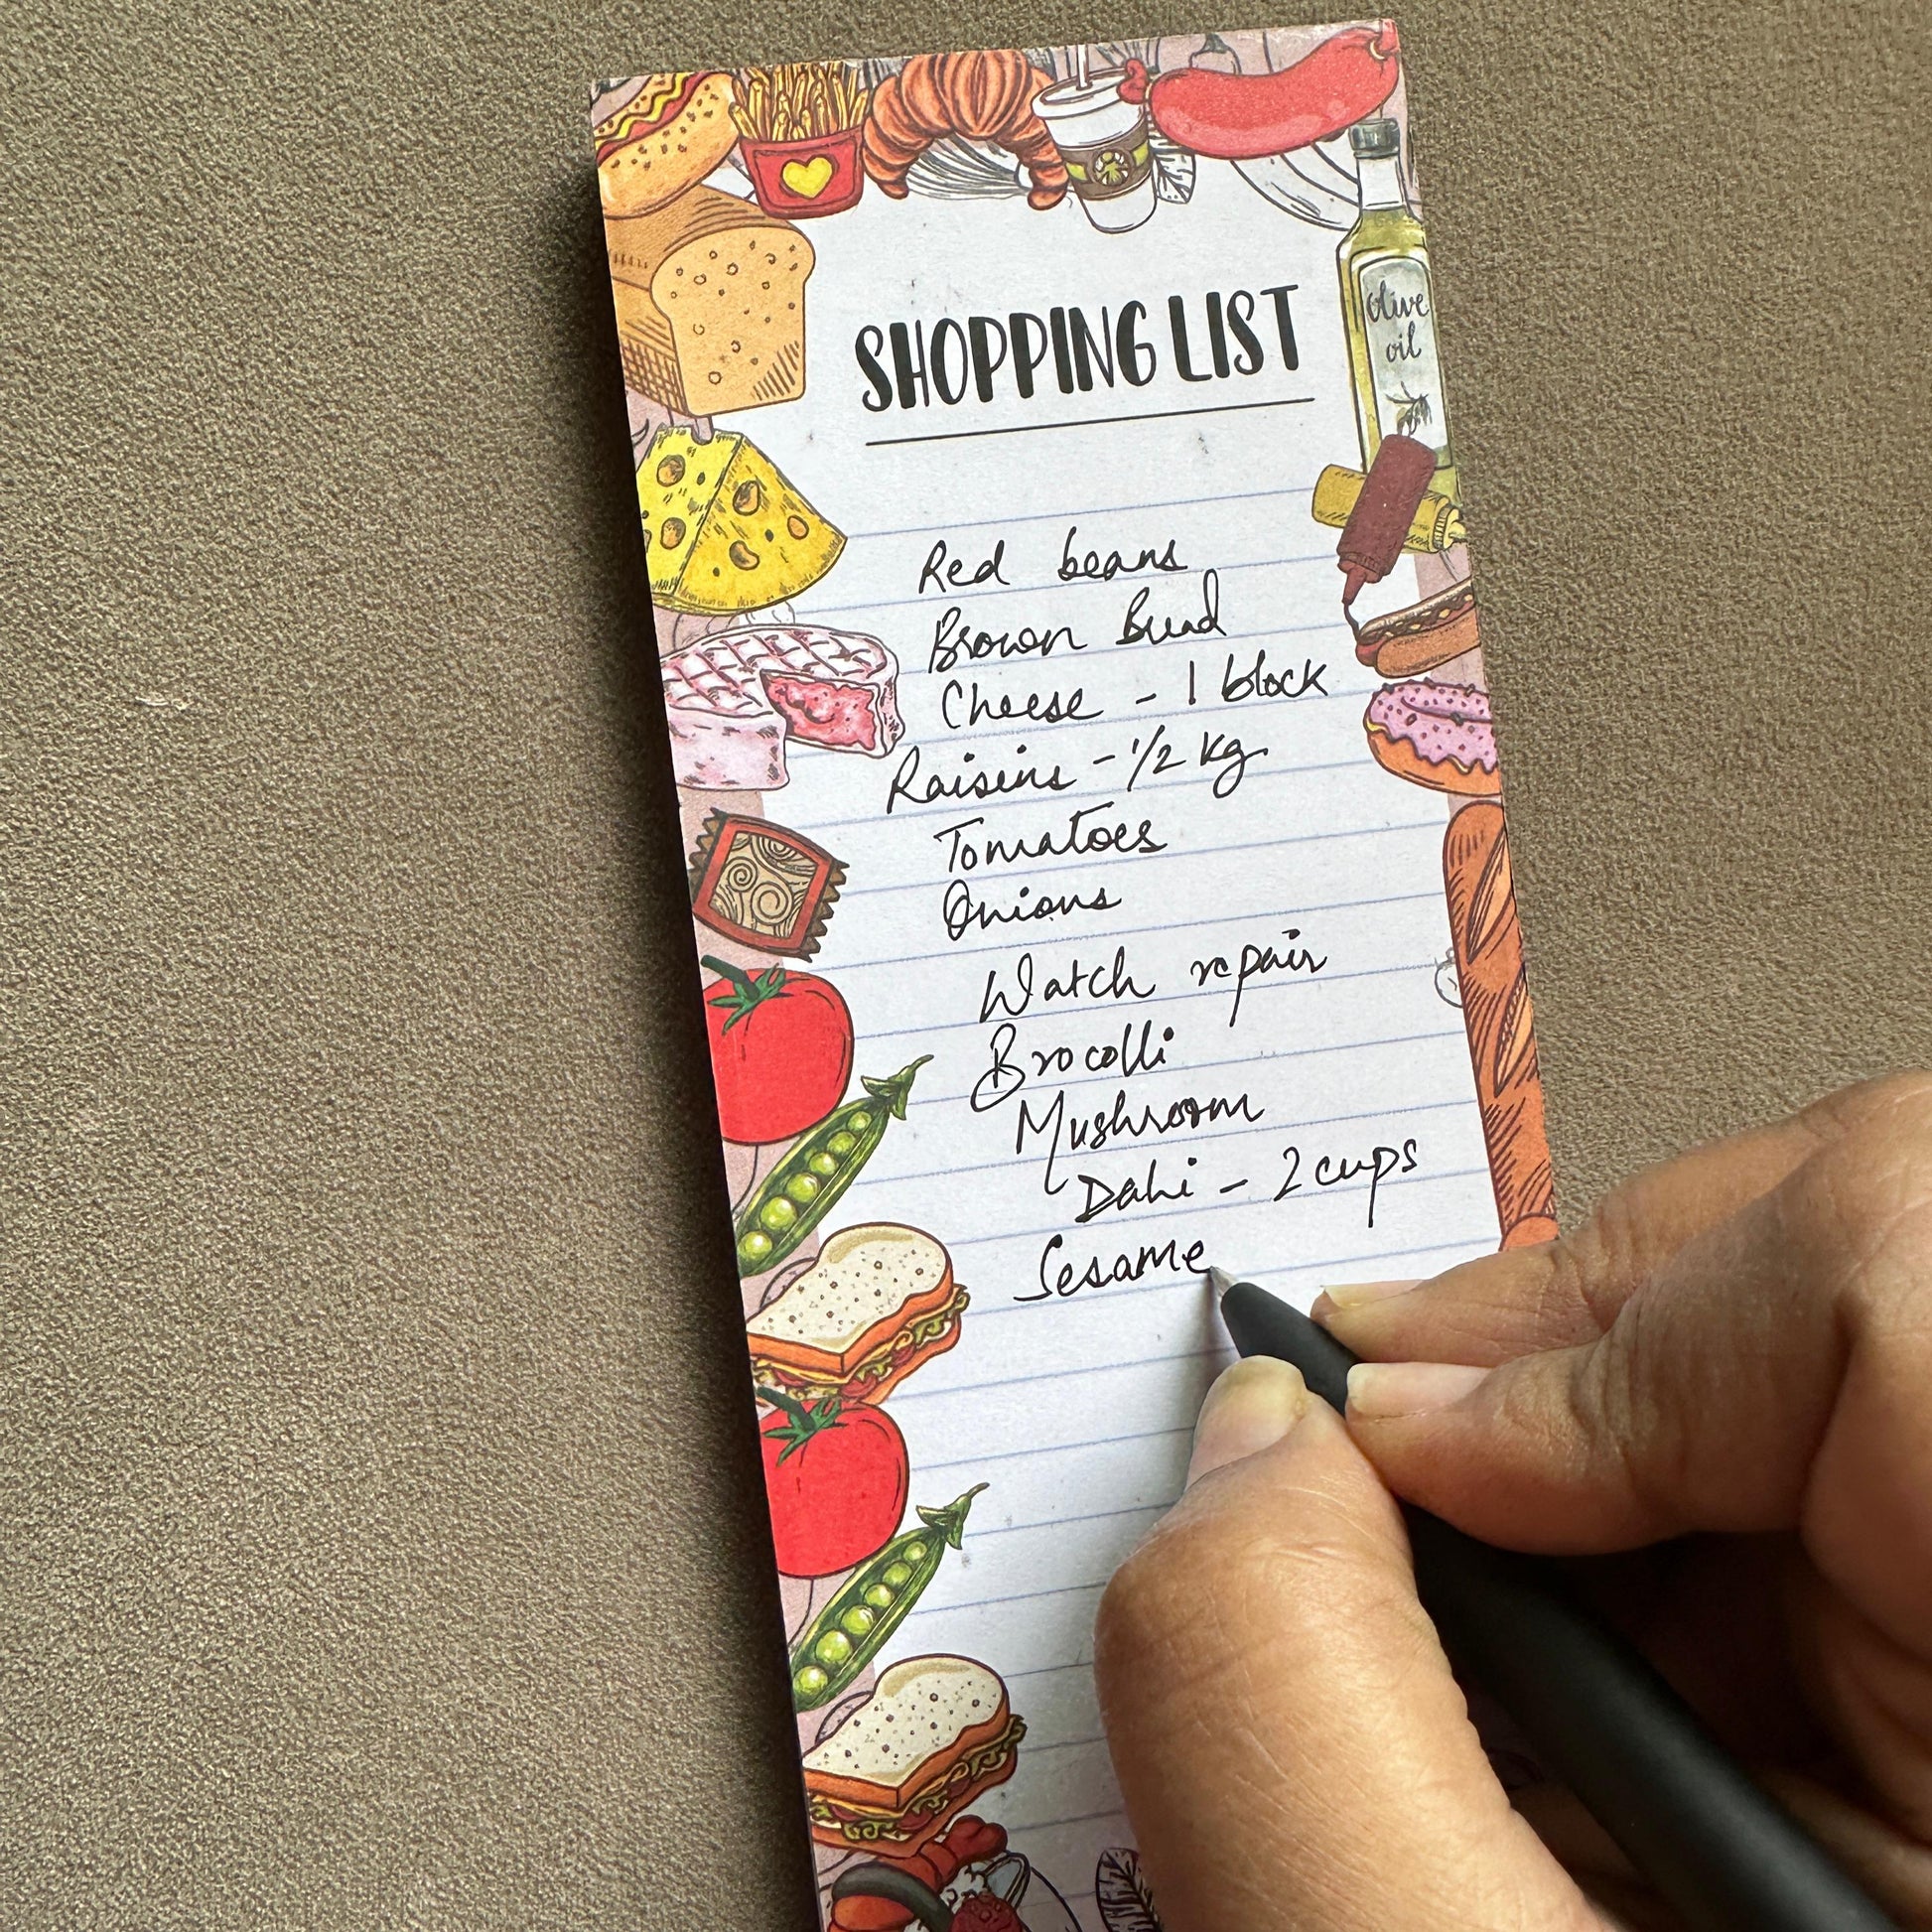 SHOPPING LIST
olive
oil
Red beans
Brown bread
Cheese - 1 block
Raisins - 1/2 kg
Tomatoes
Onions
Watch repair
Brocolli
Mushroom
Dahi - 2 cups
Sesame